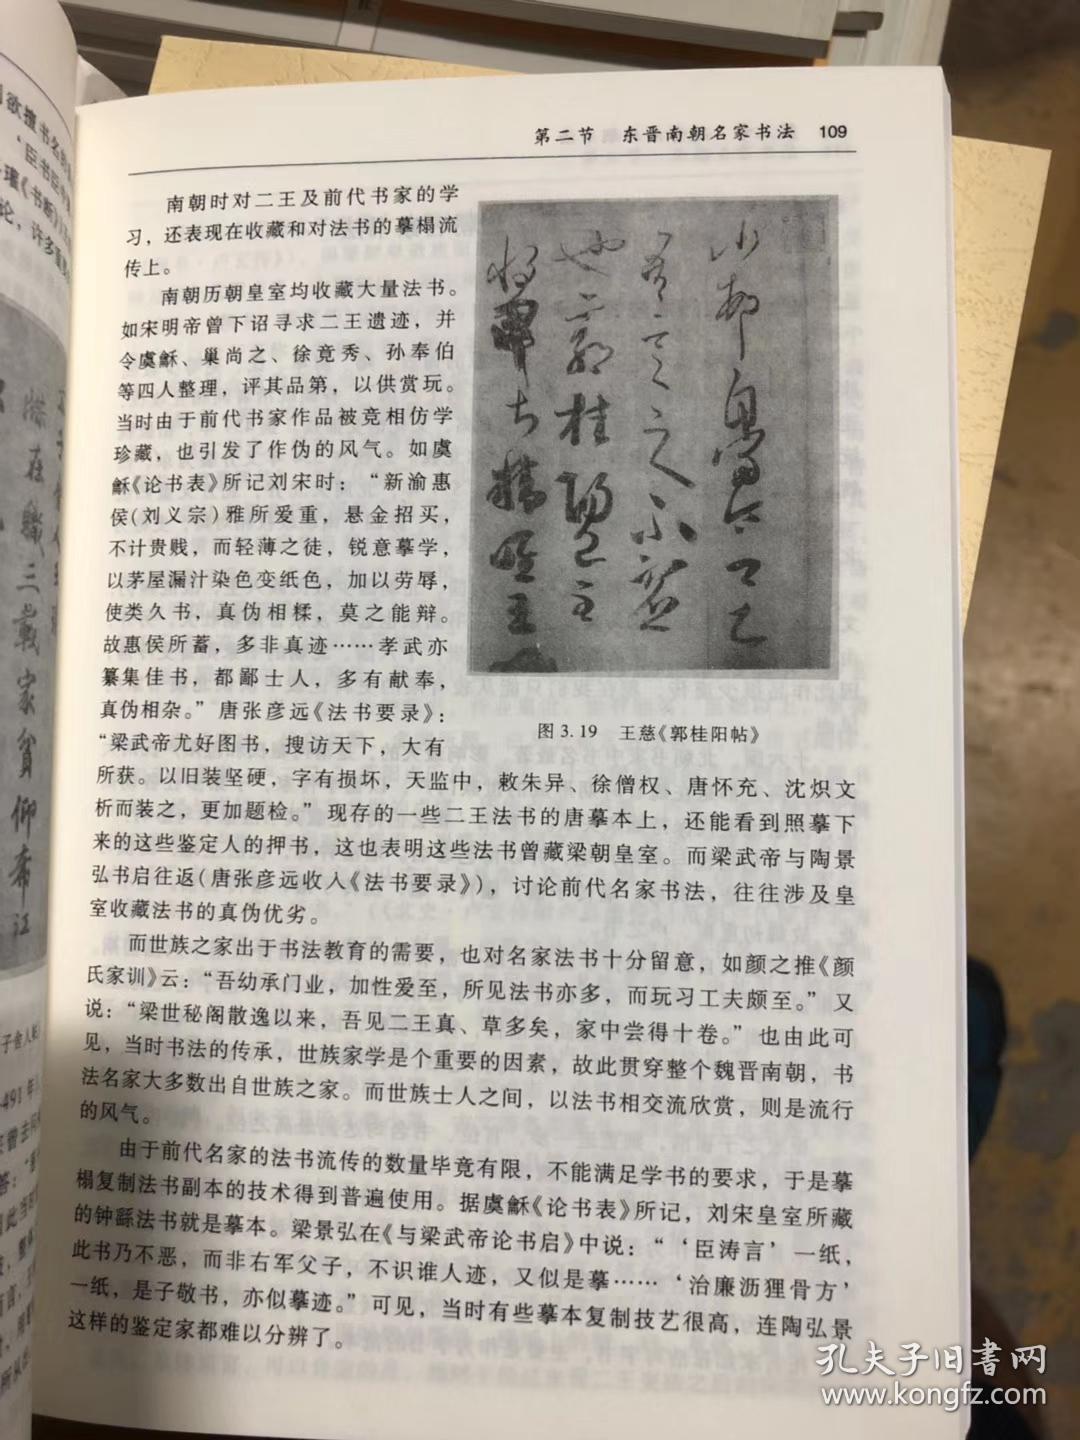 第二节 东晋南朝名家书法 109
南朝时对二王及前代书家的学
习，还表现在收藏和对法书的摹榻流
传上。
南朝历朝皇室均收藏大量法书。
如宋明帝曾下诏寻求二王遗迹，并
令虞龢、巢尚之、徐竞秀、孙奉伯
等四人整理，评其品第，以供赏玩。
当时由于前代书家作品被竞相仿学
珍藏，也引发了作伪的风气。如虞
龢《论书表》所记刘宋时：“新渝惠
侯（刘义宗）雅所爱重，悬金招买，
不计贵贱，而轻薄之徒，锐意摹学，
以茅屋漏汁染色变纸色，加以劳辱，
使类久书，真伪相糅，莫之能辩。
故惠侯所蓄，多非真迹……孝武亦
纂集佳书，都鄙士人，多有献奉，
真伪相杂。”唐张彦远《法书要录》：
“梁武帝尤好图书，搜访天下，大有
所获。以旧装坚硬，字有损坏，天监中，敕朱异、徐僧权、唐怀充、沈炽文
析而装之，更加题检。”现存的一些二王法书的唐摹本上，还能看到照摹下
来的这些鉴定人的押书，这也表明这些法书曾藏梁朝皇室。而梁武帝与陶景
弘书启往返（唐张彦远收入《法书要录》），讨论前代名家书法，往往涉及皇
室收藏法书的真伪优劣。
而世族之家出于书法教育的需要，也对名家法书十分留意，如颜之推《颜
氏家训》云：“吾幼承门业，加性爱至，所见法书亦多，而玩习工夫颇至。”又
说：“梁世秘阁散逸以来，吾见二王真、草多矣，家中尝得十卷。”也由此可
见，当时书法的传承，世族家学是个重要的因素，故此贯穿整个魏晋南朝，书
法名家大多数出自世族之家。而世族士人之间，以法书相交流欣赏，则是流行
的风气。
由于前代名家的法书流传的数量毕竟有限，不能满足学书的要求，于是摹
榻复制法书副本的技术得到普遍使用。据虞龢《论书表》所记，刘宋皇室所藏
的钟繇法书就是摹本。梁景弘在《与梁武帝论书启》中说：“‘臣涛言’一纸，
此书乃不恶，而非右军父子，不识谁人迹，又似是摹……‘治廉沥狸骨方’
一纸，是子敬书，亦似摹迹。”可见，当时有些摹本复制技艺很高，连陶弘景
这样的鉴定家都难以分辨了。
图 3.19 王慈《郭桂阳帖》
在职三载家贫仰希江
孔夫子旧书网
www.kongfz.com